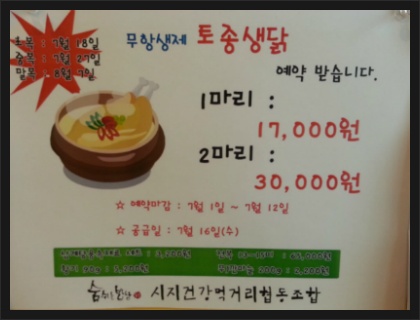 초복 : 7월 18일
중복 : 7월 27일
말복 : 8월 7일
무항생제 토종생닭
예약 받습니다.
1마리 :
17,000원
2마리 :
30,000원
☆ 예약마감 : 7월 1일 ~ 7월 12일
☆ 공급일 : 7월 16일(수)
: 3,200원
황기 90g : 3,200원
200g : 2,200원
시지건강먹거리협동조합